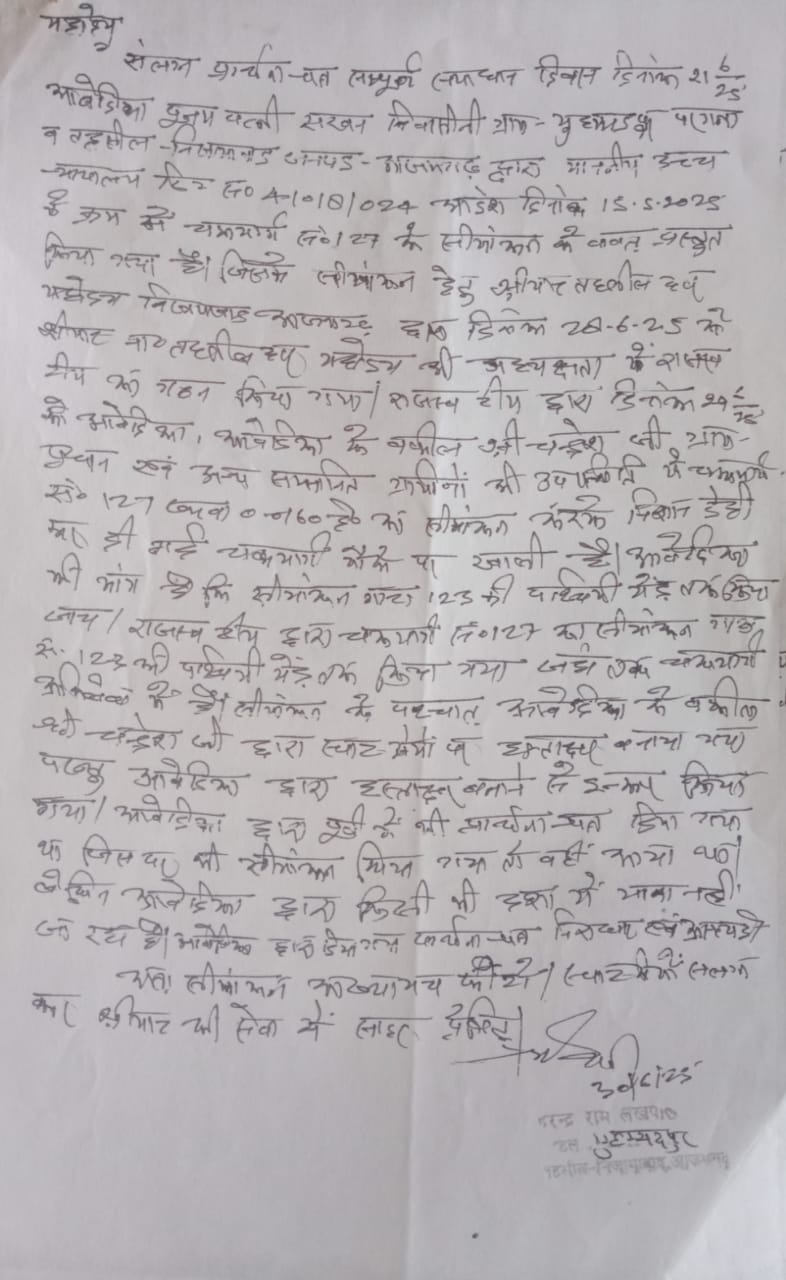 महोदय,
संलग्न प्रार्थना-पत्र सम्पूर्ण समाधान दिवस दिनांक 21/6/25
आवेदिका पूनम पत्नी निवासिनी ग्राम- परगना
व तहसील-निजामाबाद जनपद-आजमगढ़ द्वारा माननीय उच्च
न्यायालय रिट सं० आदेश दिनांक 15.5.2025
के क्रम में चकमार्ग सं० 127 के सीमांकन के बावत प्रस्तुत
किया गया है। जिसके सीमांकन हेतु श्रीमान तहसीलदार
महोदय निजामाबाद-आजमगढ़ द्वारा दिनांक 28-6-25 को
श्रीमान नायब तहसीलदार महोदय की अध्यक्षता में राजस्व
टीम का गठन किया गया। राजस्व टीम द्वारा दिनांक 29/6/25
को आवेदिका, आवेदिका के वकील श्री चन्द्रेश जी ग्राम-
प्रधान एवं अन्य सम्मानित ग्रामीणों की उपस्थिति में चकमार्ग
सं० 127 हे० का सीमांकन करके
दी गई चकमार्ग मौके पर खाली है। आवेदिका
की मांग है कि सीमांकन गाटा 123 की पश्चिमी मेड़ तक किया
जाय। राजस्व टीम द्वारा चकमार्ग सं० 127 का सीमांकन गाटा
सं. 123 की पश्चिमी मेड़ तक किया गया जहां तक चकमार्ग
अभिलेख में है। सीमांकन के पश्चात् आवेदिका के वकील
श्री चन्द्रेश जी द्वारा स्थल मेमो पर हस्ताक्षर बनाया गया
परन्तु आवेदिका द्वारा हस्ताक्षर बनाने से इन्कार किया
गया। आवेदिका द्वारा पूर्व में भी प्रार्थना-पत्र दिया गया
था जिस पर भी सीमांकन किया गया तो वहीं आया था।
लेकिन आवेदिका द्वारा किसी भी दशा में माना नहीं
जा रहा है। आवेदिका द्वारा दिया गया प्रार्थना-पत्र निराधार एवं
अतः सीमांकन आख्या स्थल मेमो संलग्न
कर श्रीमान की सेवा में सादर प्रेषित।
राम लेखपाल
मुहम्मदपुर
तहसील-निजामाबाद, आजमगढ़